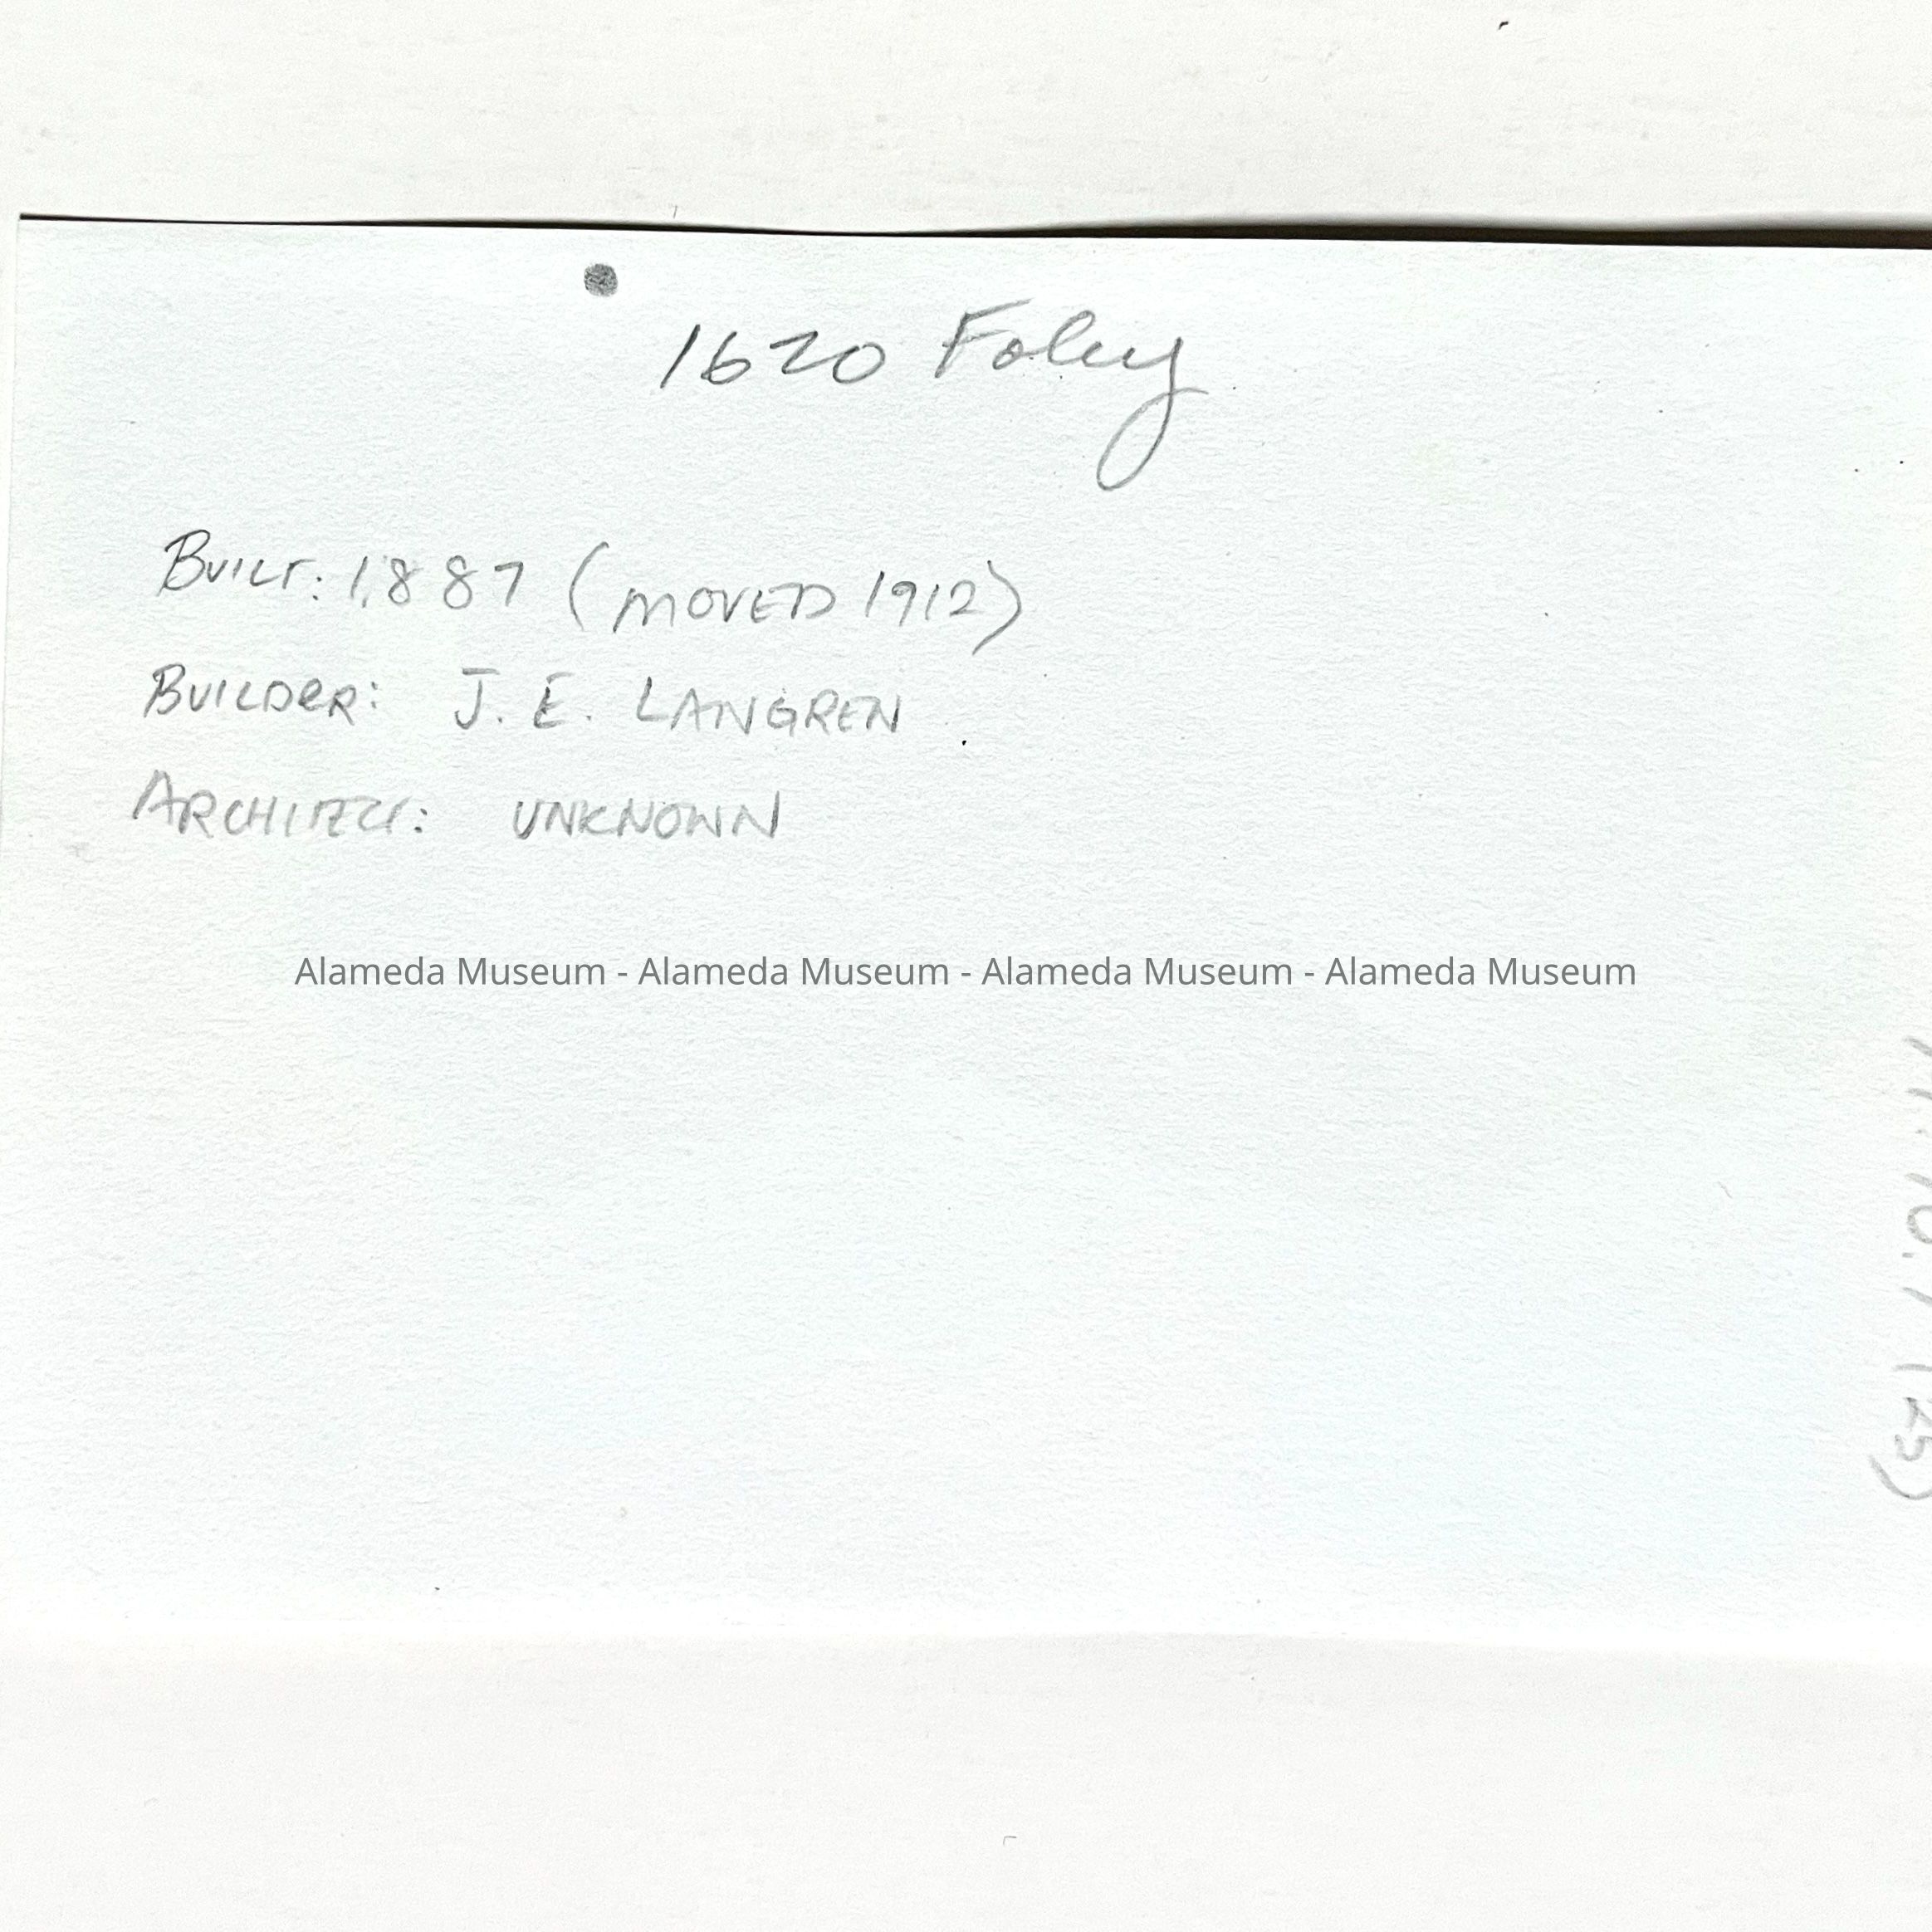 1620 Foley
BUILT: 1887 (MOVED 1912)
BUILDER: J. E. LANGREN
ARCHITECT: UNKNOWN
Alameda Museum - Alameda Museum - Alameda Museum - Alameda Museum